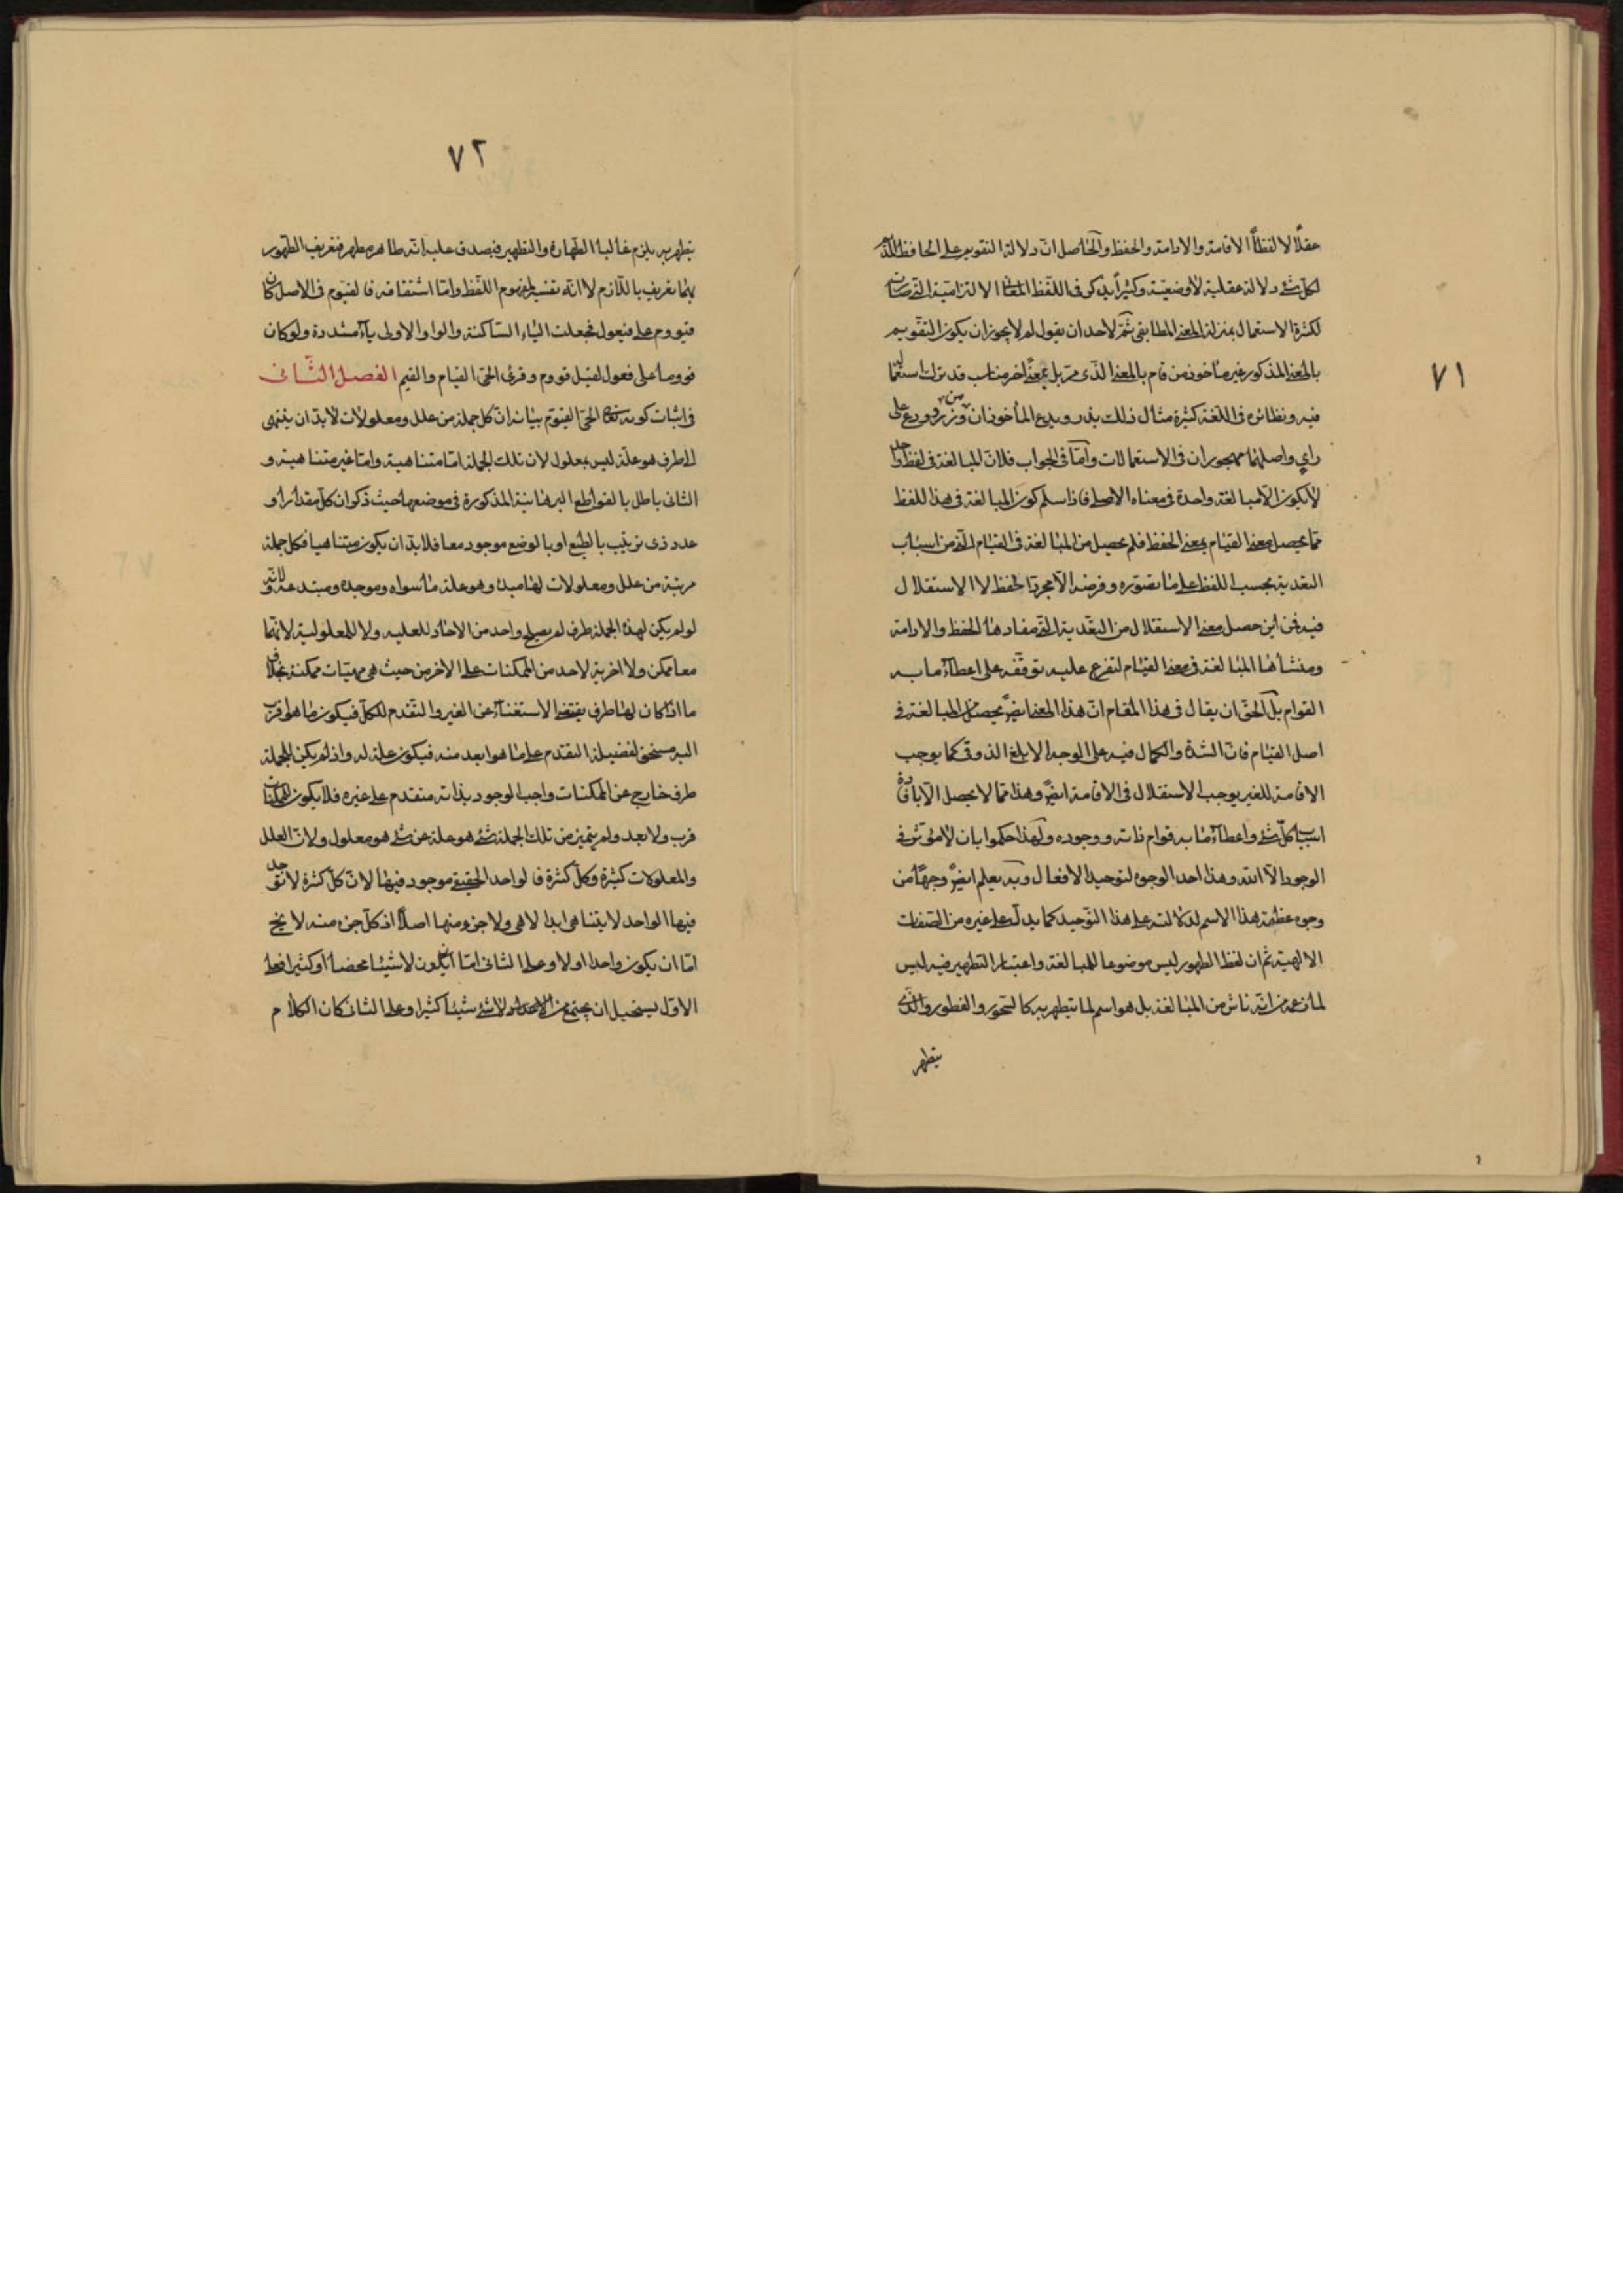 ٧١
عقلًا لا لفظًا الاقامة والادامة والحفظ والحاصل انّ دلالة التقويم على الحافظ
لكل شئ دلالة عقلية لا وضعيّة وكثيراً يذكر فى اللفظ المعانى الالتزامية التى صارت
لكثرة الاستعمال بمنزلة المعنى المطابقى ثمّ لاحد ان يقول لم لا يجوز ان يكون التقويم
بالمعنى المذكور غير مأخوذ من قام بالمعنى الذى مرّ بل بمعنى اخر مناسب قد ترك استعماله
فيه ونظائره فى اللغة كثيرة مثال ذلك يذر ويدع المأخوذان من وزر وودع على
راى واصلهما مهجوران فى الاستعمالات وأمّا فى الجواب فلانّ المبالغة فى لفظ واحد
لا يكون الّا مبالغة واحدة فى معناه الاصلى فاذا سلّم كون المبالغة فى هذا اللفظ
ممّا يحصل معنى القيام بمعنى الحفظ فلم يحصل من المبالغة فى القيام التى من اسباب
التعدية بحسب اللفظ على ما تصوّره وفرضه الّا مجرّد الحفظ لا الاستقلال
فيه فمن أين حصل معنى الاستقلال من التعدية التى مفادها الحفظ والادامة
ومنشأها المبالغة فى معنى القيام لتفرع عليه توقّفه على اعطاء ما به
القوام بل الحق ان يقال فى هذا المقام انّ هذا المعنى ايضً يحصل من المبالغة فى
اصل القيام فانّ الشدة والكمال فيه على الوجه الابلغ الذوقى كما يوجب
الاقامة للغير يوجب الاستقلال فى الاقامة ايضً وهذا ممّا لا يحصل الّا بافادة
اسباب كلّ شئ واعطاء ما به قوام ذاته ووجوده ولهذا حكموا بان لا مؤثر فى
الوجود الّا الله وهذا احد الوجوه لتوحيد الافعال وبه يعلم ايضً وجهًا من
وجوه عظمة هذا الاسم لدلالته على هذا التوحيد كما يدلّ على غيره من الصفات
الالهية ثم ان لفظ الطهور ليس موضوعا للمبالغة واعتبار التطهير فيه ليس
لما زعمه من انّه ناش من المبالغة بل هو اسم لما يتطهر به كالسحور والفطور والذى
يتطهر
٧٢
يتطهر به يلزم غالبا الطهارة والتطهير فيصدق عليه انّه طاهر مطهر فتعريف الطهور
بهما تعريف باللازم لا انّه تفسير لمفهوم اللفظ وامّا اشتقاقه فالقيّوم فى الاصل كان
قيووم على فيعول فجعلت الياء الساكنة والواو الاولى ياءً مشددة ولو كان
قووما على فعول لقيل قووم وقرئ الحىّ القيام والقيم الفصل الثّانى
فى اثبات كونه تعالى الحىّ القيّوم بيانه انّ كل جملة من علل ومعلولات لا بدّ ان ينتهى
الى طرف هو علّة ليس بمعلول لان تلك الجملة امّا متناهية وامّا غير متناهية و
الثانى باطل بالقواطع البرهانية المذكورة فى موضعها حيث ذكر ان كلّ مقدار أو
عدد ذى ترتيب بالطبع او بالوضع موجود معا فلا بدّ ان يكون متناهيا فكل جملة
مرتبة من علل ومعلولات لها مبدء وهو علة ما سواه وموجده ومبتدعه لانّه
لو لم يكن لهذه الجملة طرف لم يصلح واحد من الاحاد للعلية ولا للمعلولية لانّها
معا ممكن ولا اخرية لاحد من الممكنات على الاخر من حيث هى مهيّات ممكنة بخلاف
ما اذا كان لها طرف يقتضى الاستغناء عن الغير والتقدم للكل فيكون ما هو اقرب
اليه مستحق لفضيلة التقدم على ما هو ابعد منه فيكون علة له واذ لم يكن للجملة
طرف خارج عن الممكنات واجب الوجود بذاته متقدم على غيره فلا يكون للممكنات
قرب ولا بعد ولم يتميز من تلك الجملة شئ هو علة عن شئ هو معلول ولانّ العلل
والمعلولات كثيرة وكلّ كثرة فالواحد الحقيقى موجود فيها لانّ كلّ كثرة لا توجد
فيها الواحد لا يتناهى ابدا لا هى ولا جزء منها اصلًا اذ كلّ جزء منه لا يخ
امّا ان يكون واحدا اولا وعلى الثانى امّا ان يكون لا شيئا محضا أو كثيرا فعلى
الاوّل يستحيل ان يجتمع من لا شئ شيئا كثيرا وعلى الثانى كان الكلام